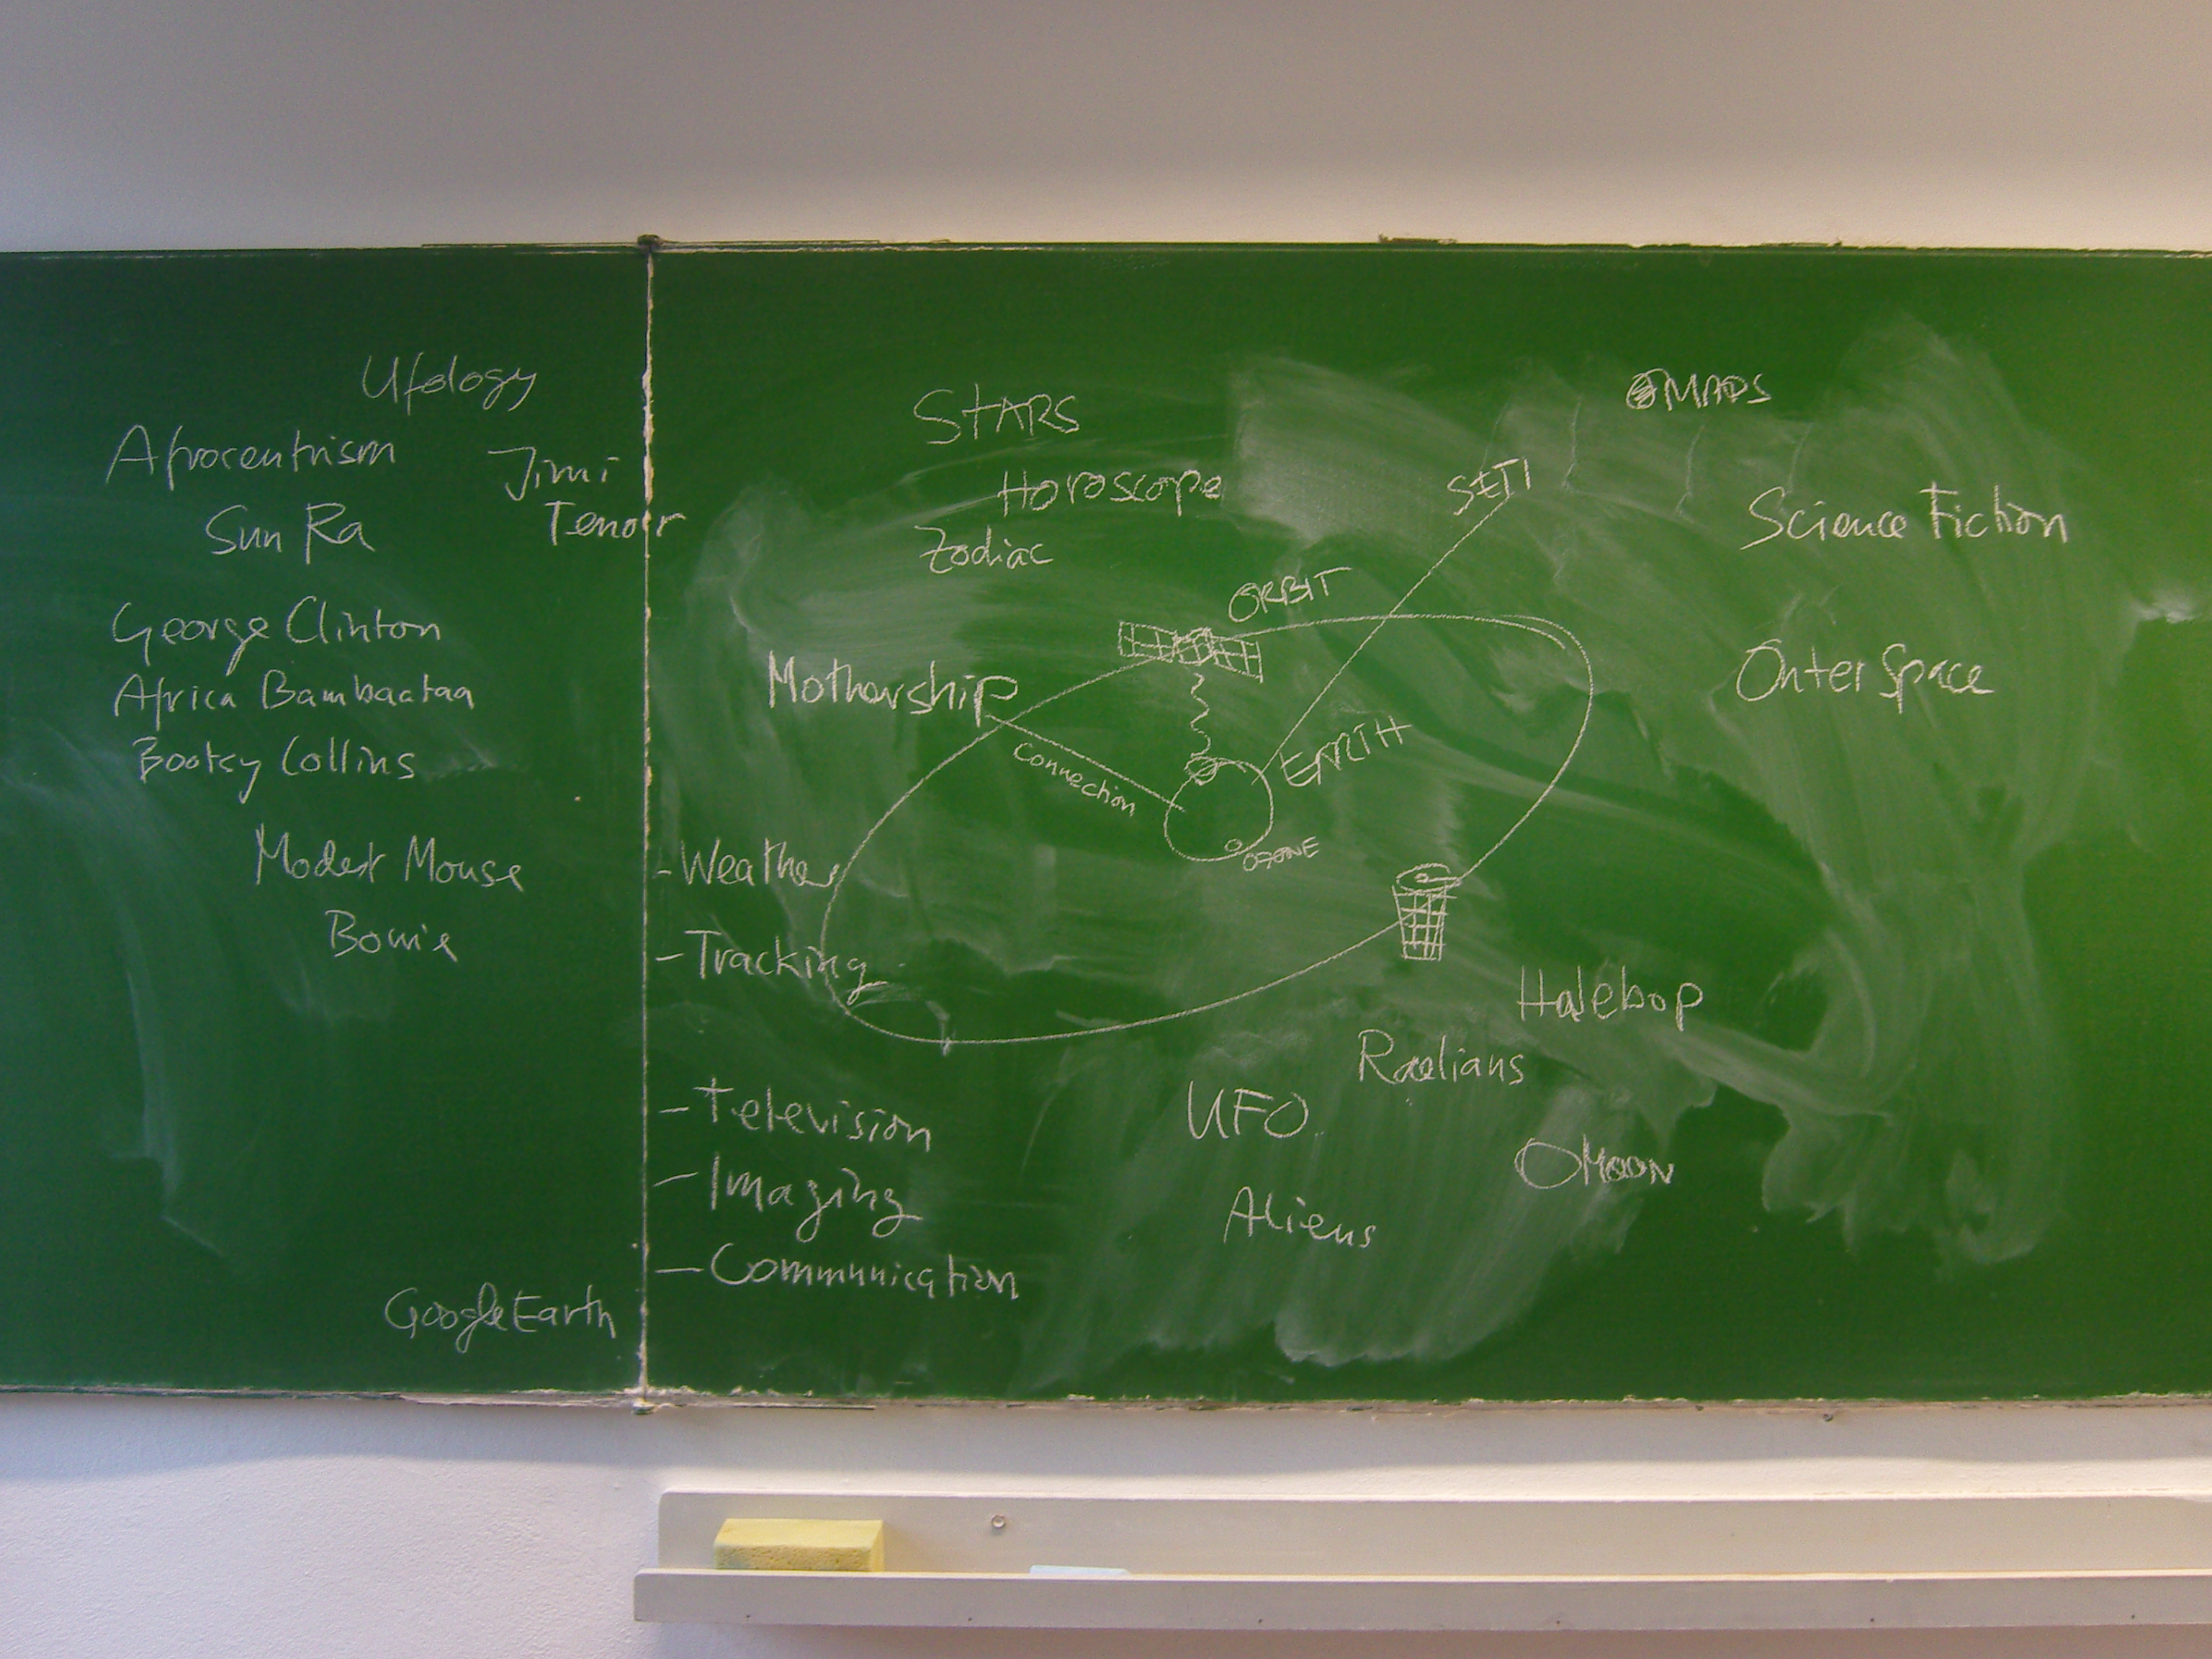 Ufology
Afrocentrism
Jimi
Tenor
Sun Ra
George Clinton
Africa Bambaataa
Bootsy Collins
Modest Mouse
Bowie
Google Earth
STARS
Horoscope
Zodiac
ORBIT
SETI
Science Fiction
Outer Space
Mothership
Connection
EARTH
OZONE
- Weather
- Tracking
- Television
- Imaging
- Communication
Halebop
Raelians
UFO
MOON
Aliens